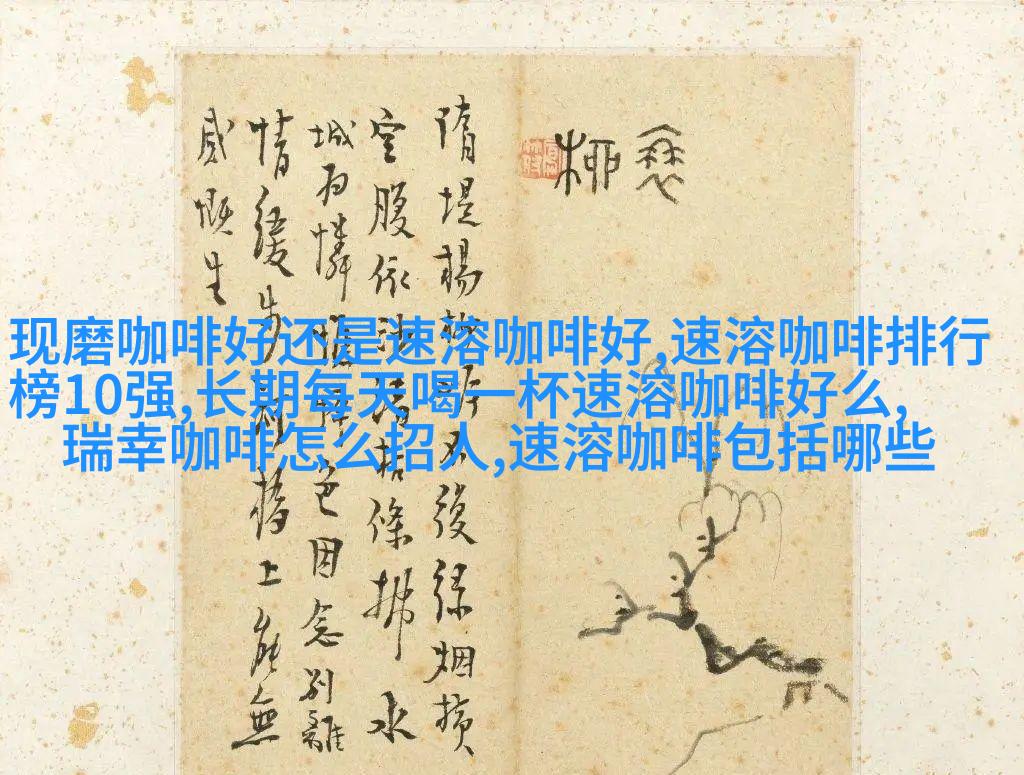 现磨咖啡好还是速溶咖啡好,速溶咖啡排行
榜10强,长期每天喝一杯速溶咖啡好么,
瑞幸咖啡怎么招人,速溶咖啡包括哪些
衰柳
隋堤楊不復綠烟橫
空腹依枯條拂水
城而憐憔悴色因念別離
情緩步上能無
感慨生